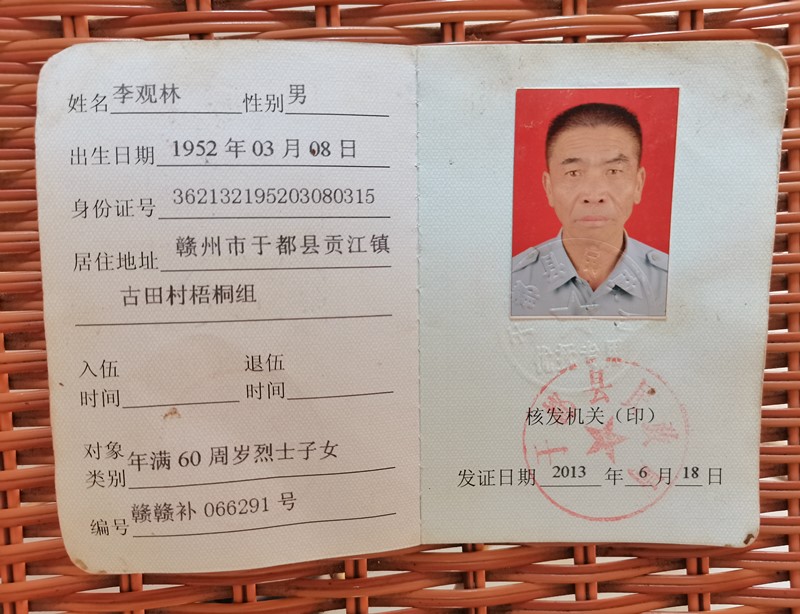 姓名 李观林 性别 男
出生日期 1952 年 03 月 08 日
身份证号 362132195203080315
居住地址 赣州市于都县贡江镇
古田村梧桐组
入伍时间 退伍时间
对象类别 年满 60 周岁烈士子女
编号 赣赣补 066291 号
核发机关（印）
发证日期 2013 年 6 月 18 日